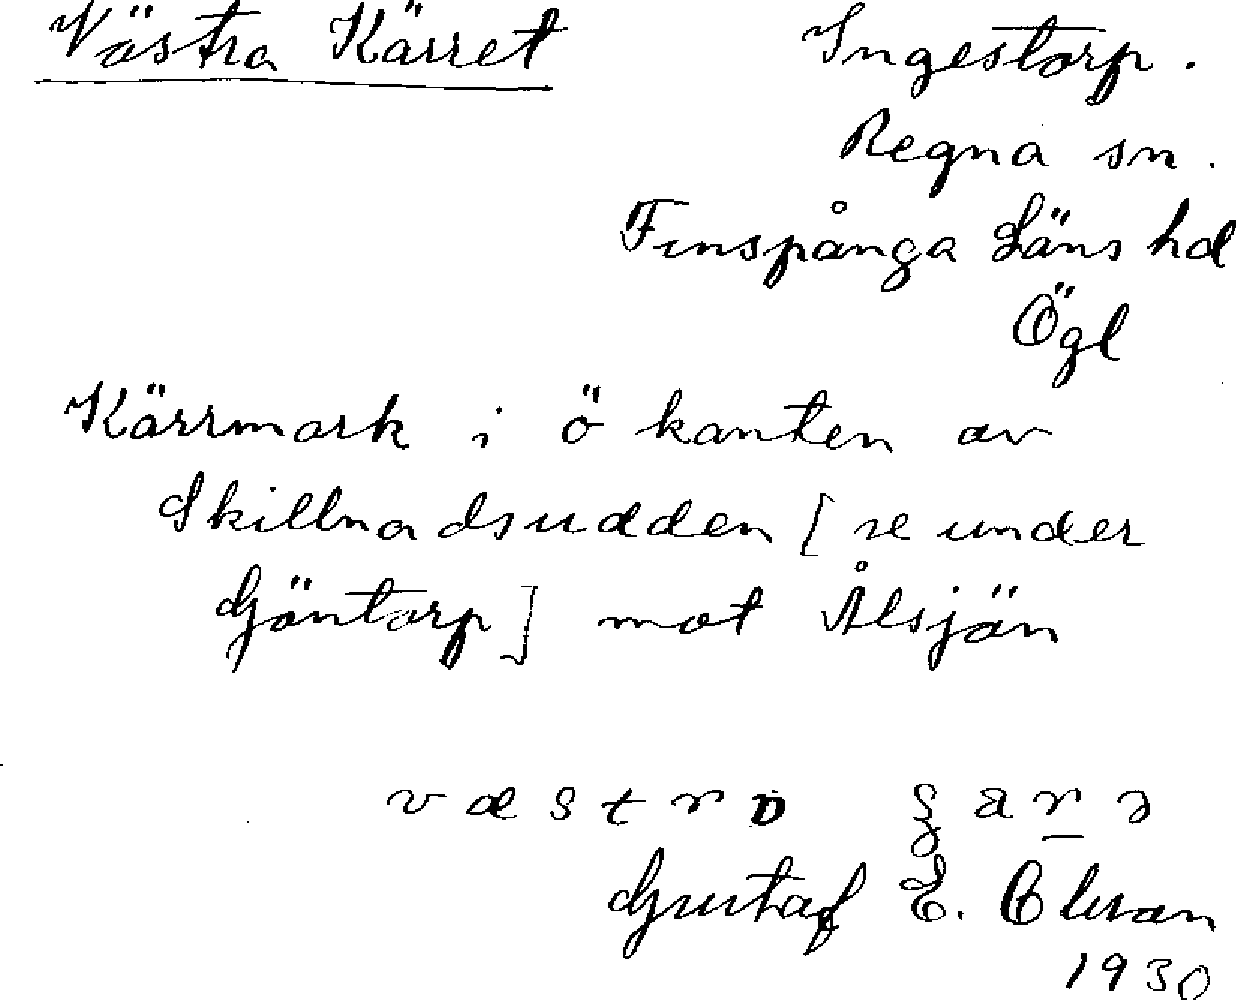 Västra Kärret Ingestorp.
Regna sn.
Finspånga Läns hd
Ögl
Kärrmark i ö kanten av
Skillnadsudden [se under
Göntorp] mot Ålsjön
Gustaf E. Olson
1930